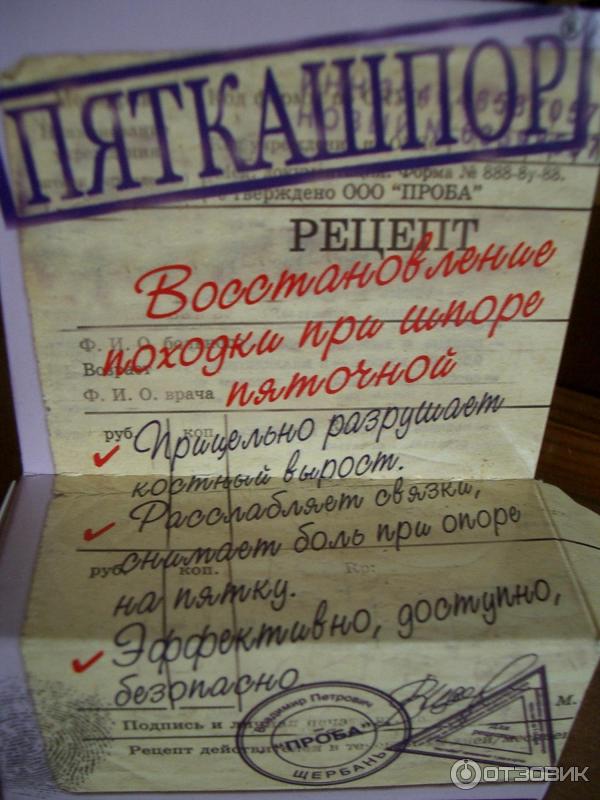 ПЯТКАШПОР®
Форма № 888-8у-88.
ООО "ПРОБА"
РЕЦЕПТ
Восстановление
походки при шпоре
пяточной
Ф. И. О.
Возраст
Ф. И. О. врача
руб. коп.
✓ Прицельно разрушает
костный вырост.
✓ Расслабляет связки,
снимает боль при опоре
руб. коп. Rp:
на пятку.
✓ Эффективно, доступно,
безопасно
Владимир Петрович
"ПРОБА"
ЩЕРБАНЬ
М.
Подпись и
Рецепт
ОТЗОВИК